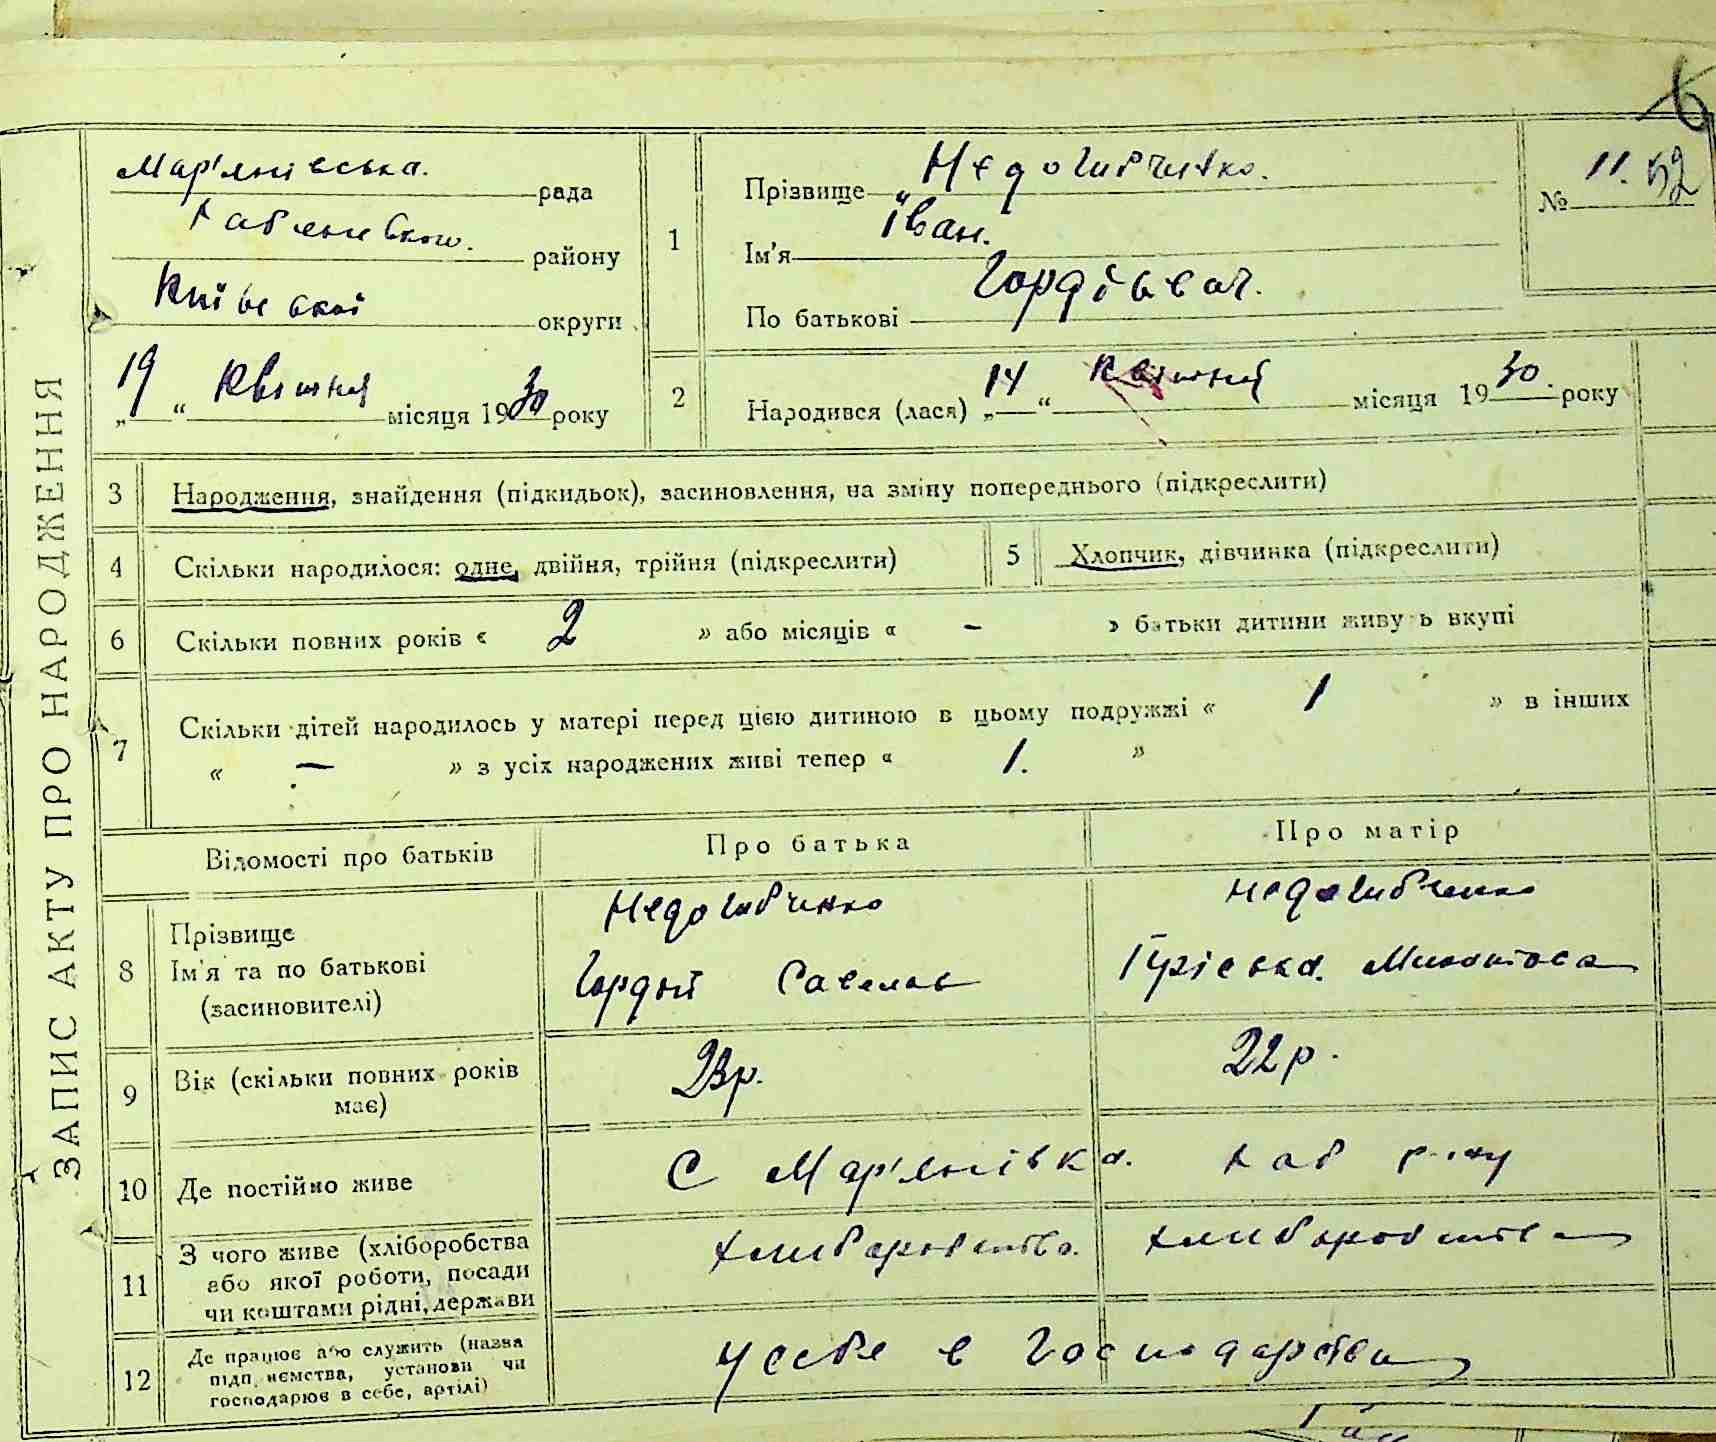 ЗАПИС АКТУ ПРО НАРОДЖЕННЯ
Мар'янівська. рада
району
Київської округи
„19“ Квітня місяця 1930 року
1
Прізвище
Ім'я Іван.
По батькові Гордієвич.
№ 11. 52
2
Народився (лася) „14“ Квітня місяця 1930 року
3 Народження, знайдення (підкидьок), засиновлення, на зміну попереднього (підкреслити)
4 Скільки народилося: одне, двійня, трійня (підкреслити)
5 Хлопчик, дівчинка (підкреслити)
6 Скільки повних років « 2 » або місяців « – » батьки дитини живуть вкупі
7 Скільки дітей народилось у матері перед цією дитиною в цьому подружжі « 1 » в інших
« – » з усіх народжених живі тепер « 1. »
Відомості про батьків Про батька Про матір
8 Прізвище
Ім'я та по батькові Гордій
(засиновителі)
9 Вік (скільки повних років має) 23р. 22р.
10 Де постійно живе С Мар'янівка.
11 З чого живе (хліборобства
або якої роботи, посади
чи коштами рідні, держави
хлиборобство. хлиборобство
12 Де працює або служить (назва
підприємства, установи чи
господарює в себе, артілі)
У себе в господарстви